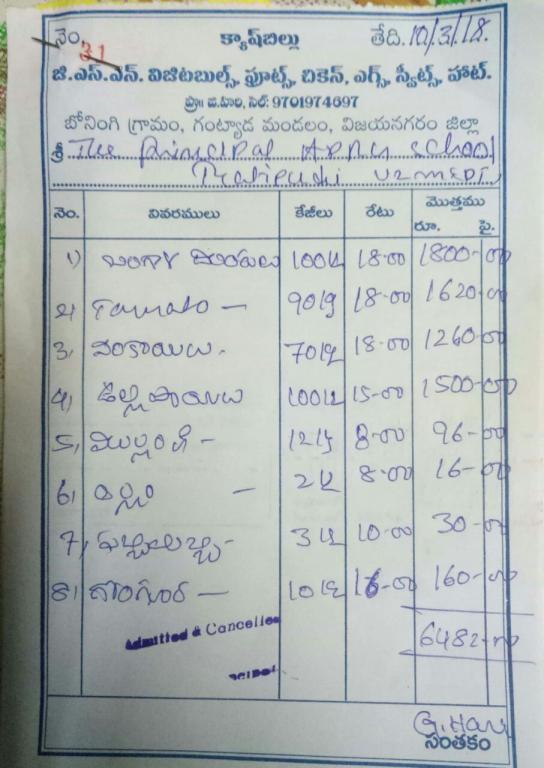 నెం. 31 క్యాష్‌బిల్లు తేది. 10/3/18.
జి.ఎస్.ఎన్. విజిటబుల్స్, ఫ్రూట్స్, చికెన్, ఎగ్స్, స్వీట్స్, హాట్.
ప్రొ॥ జి.హరి, సెల్: 9701974697
బోనంగి గ్రామం, గంట్యాడ మండలం, విజయనగరం జిల్లా
శ్రీ The Principal School
నెం. వివరములు కేజీలు రేటు మొత్తము
రూ. పై.
1) బంగాళ దుంపలు 100 18-00 1800-00
2) Tamato - 90 18-00 1620-00
3, వంకాయలు - 70 18-00 1260-00
4) ఉల్లిపాయలు 100 15-00 1500-00
5, ముల్లంగి - 12 8-00 96-00
6) అల్లం - 2 8-00 16-00
7, - 3 10-00 30-00
8) గొంగూర - 10 16-00 160-00
6482-00
Admitted & Cancelled
G. Hari
సంతకం